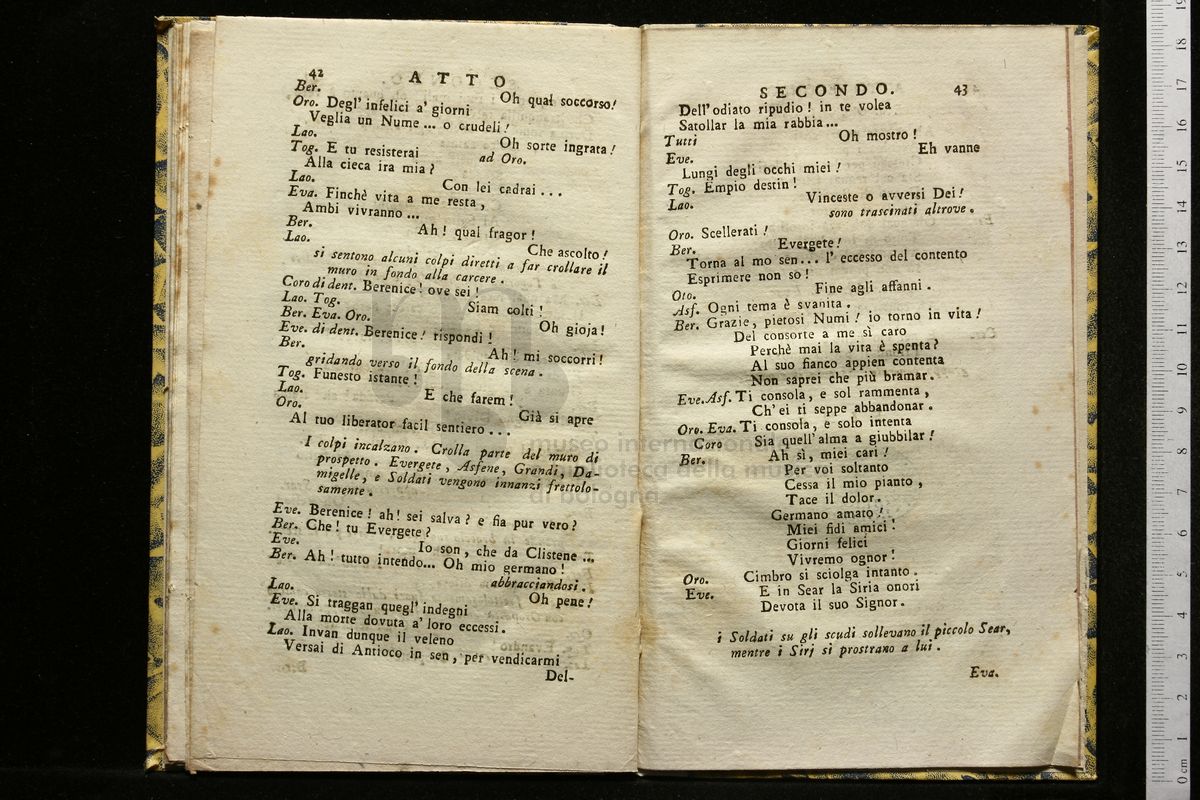 42 ATTO
Ber. Oh qual soccorso!
Oro. Degl' infelici a' giorni
Veglia un Nume ... o crudeli!
Lao. Oh sorte ingrata!
Tog. E tu resisterai ad Oro.
Alla cieca ira mia?
Lao. Con lei cadrai ...
Eva. Finchè vita a me resta,
Ambi vivranno ...
Ber. Ah! qual fragor!
Lao. Che ascolto!
si sentono alcuni colpi diretti a far crollare il
muro in fondo alla carcere.
Coro di dent. Berenice! ove sei!
Lao. Tog. Siam colti!
Ber. Eva. Oro. Oh gioja!
Eve. di dent. Berenice! rispondi!
Ber. Ah! mi soccorri!
gridando verso il fondo della scena.
Tog. Funesto istante!
Lao. E che farem!
Oro. Già si apre
Al tuo liberator facil sentiero ...
I colpi incalzano. Crolla parte del muro di
prospetto. Evergete, Asfene, Grandi, Da-
migelle, e Soldati vengono innanzi frettolo-
samente.
Eve. Berenice! ah! sei salva? e fia pur vero?
Ber. Che! tu Evergete?
Eve. Io son, che da Clistene ...
Ber. Ah! tutto intendo... Oh mio germano!
abbracciandosi.
Lao. Oh pene!
Eve. Si traggan quegl' indegni
Alla morte dovuta a' loro eccessi.
Lao. Invan dunque il veleno
Versai di Antioco in sen, per vendicarmi
Del-
SECONDO. 43
Dell' odiato ripudio! in te volea
Satollar la mia rabbia...
Tutti Oh mostro!
Eve. Eh vanne
Lungi degli occhi miei!
Tog. Empio destin!
Lao. Vinceste o avversi Dei!
sono trascinati altrove.
Oro. Scellerati!
Ber. Evergete!
Torna al mo sen... l' eccesso del contento
Esprimere non so!
Oto. Fine agli affanni.
Asf. Ogni tema è svanita.
Ber. Grazie, pietosi Numi! io torno in vita!
Del consorte a me sì caro
Perchè mai la vita è spenta?
Al suo fianco appien contenta
Non saprei che più bramar.
Eve. Asf. Ti consola, e sol rammenta,
Ch' ei ti seppe abbandonar.
Oro. Eva. Ti consola, e solo intenta
Coro Sia quell' alma a giubbilar!
Ber. Ah sì, miei cari!
Per voi soltanto
Cessa il mio pianto,
Tace il dolor.
Germano amato!
Miei fidi amici!
Giorni felici
Vivremo ognor!
Oro. Cimbro si sciolga intanto.
Eve. E in Sear la Siria onori
Devota il suo Signor.
i Soldati su gli scudi sollevano il piccolo Sear,
mentre i Sirj si prostrano a lui.
Eva.